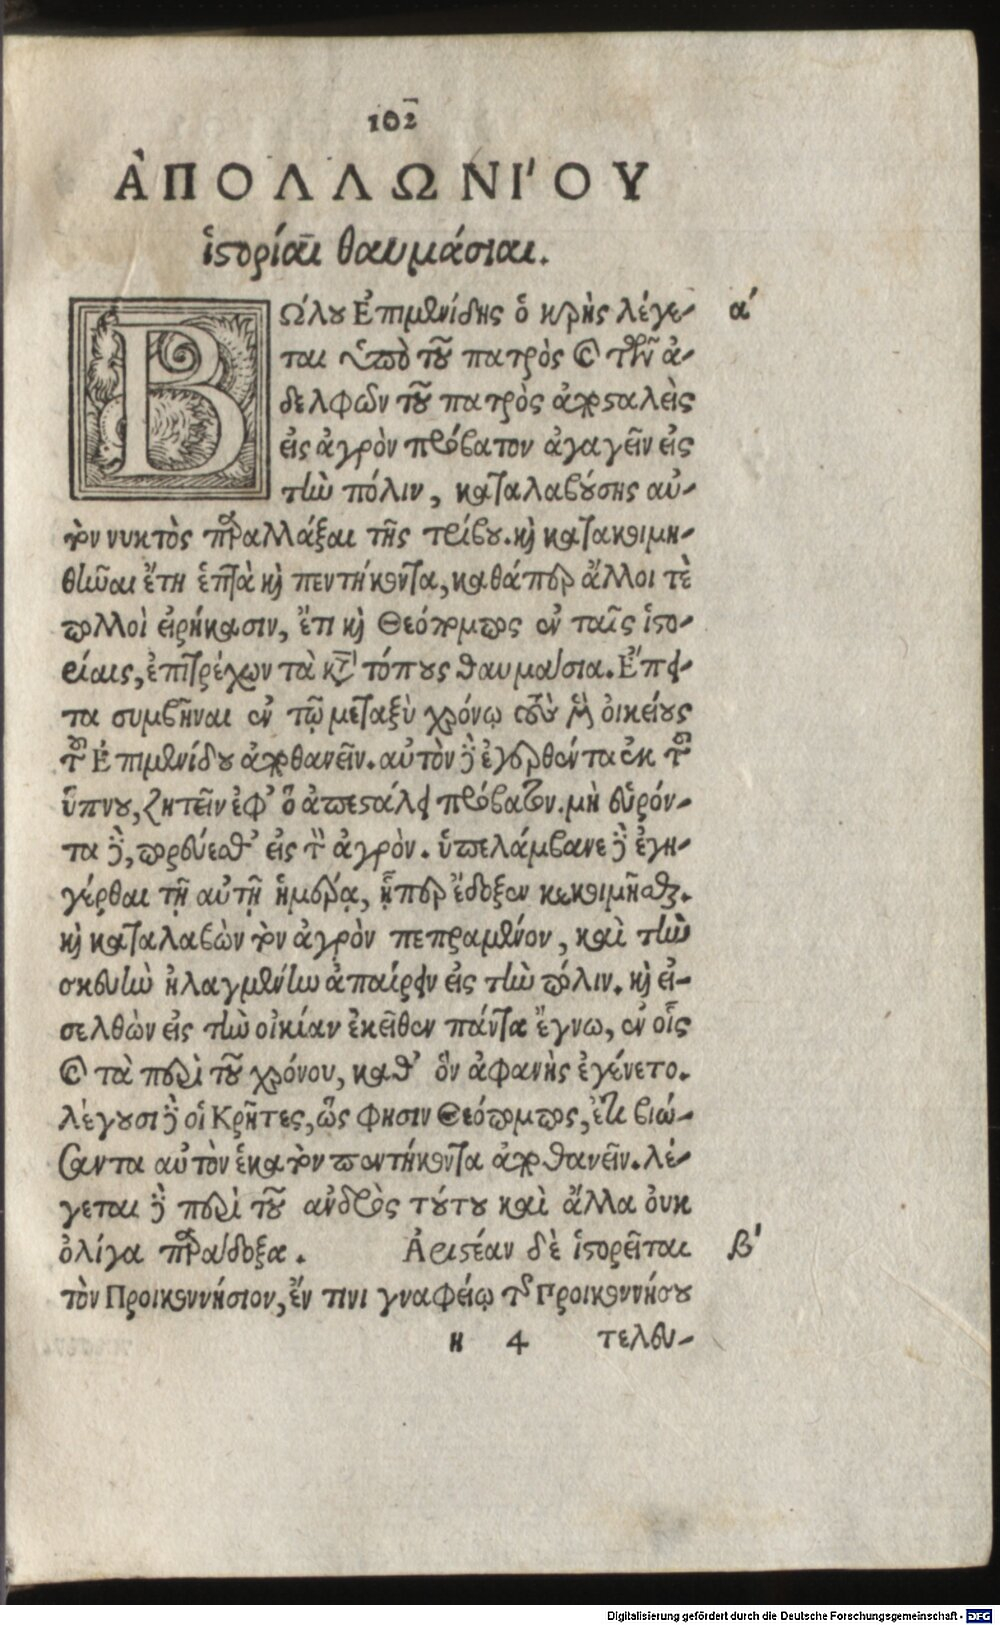 102
ἈΠΟΛΛΩΝΙ'ΟΥ
ἱστορίαι θαυμάσιαι.
ΒΩ'λου Ἐπιμενίδης ὁ κρὴς λέγε- α'
ται ὑπὸ τοῦ πατρὸς καὶ τῶν ἀ-
δελφῶν τοῦ πατρὸς ἀποσταλεὶς
εἰς ἀγρὸν πρόβατον ἀγαγεῖν εἰς
τὴν πόλιν, καταλαβούσης αὐ-
τὸν νυκτὸς παραλλάξαι τῆς τρίβου. καὶ κατακοιμη-
θῆναι ἔτη ἑπτὰ καὶ πεντήκοντα, καθάπερ ἄλλοι τὲ
πολλοὶ εἰρήκασιν, ἔτι καὶ Θεόπομπος ἐν ταῖς ἱστο-
ρίαις, ἐπιτρέχων τὰ κατὰ τόπους θαυμάσια. Ἔπει-
τα συμβῆναι ἐν τῷ μεταξὺ χρόνῳ τοὺς μὲν οἰκείους
τοῦ Ἐπιμενίδου ἀποθανεῖν. αὐτὸν δὲ ἐγερθέντα ἐκ τοῦ
ὕπνου, ζητεῖν ἐφ' ὃ ἀπεστάλη πρόβατον. μὴ εὑρόν-
τα δὲ, πορεύεσθ' εἰς τὸν ἀγρὸν. ὑπελάμβανε δὲ ἐγη-
γέρθαι τῇ αὐτῇ ἡμέρᾳ, ᾗπερ ἔδοξεν κεκοιμῆσθαι.
καὶ καταλαβὼν τὸν ἀγρὸν πεπραμένον, καὶ τὴν
σκευὴν ἠλαγμένην ἀπαίρειν εἰς τὴν πόλιν. καὶ εἰ-
σελθὼν εἰς τὴν οἰκίαν ἐκεῖθεν πάντα ἔγνω, ἐν οἷς
καὶ τὰ περὶ τοῦ χρόνου, καθ' ὃν ἀφανὴς ἐγένετο.
λέγουσι δὲ οἱ Κρῆτες, ὥς φησιν Θεόπομπος, ἔτη βιώ-
σαντα αὐτὸν ἑκατὸν πεντήκοντα ἀποθανεῖν. λέ-
γεται δὲ περὶ τοῦ ἀνδρὸς τούτου καὶ ἄλλα οὐκ
ὀλίγα παράδοξα. Ἀριστέαν δὲ ἱστορεῖται β'
τὸν Προικοννήσιον, ἔν τινι γναφείῳ τῆς Προικοννήσου
κ 4 τελευ-
Digitalisierung gefördert durch die Deutsche Forschungsgemeinschaft - DFG